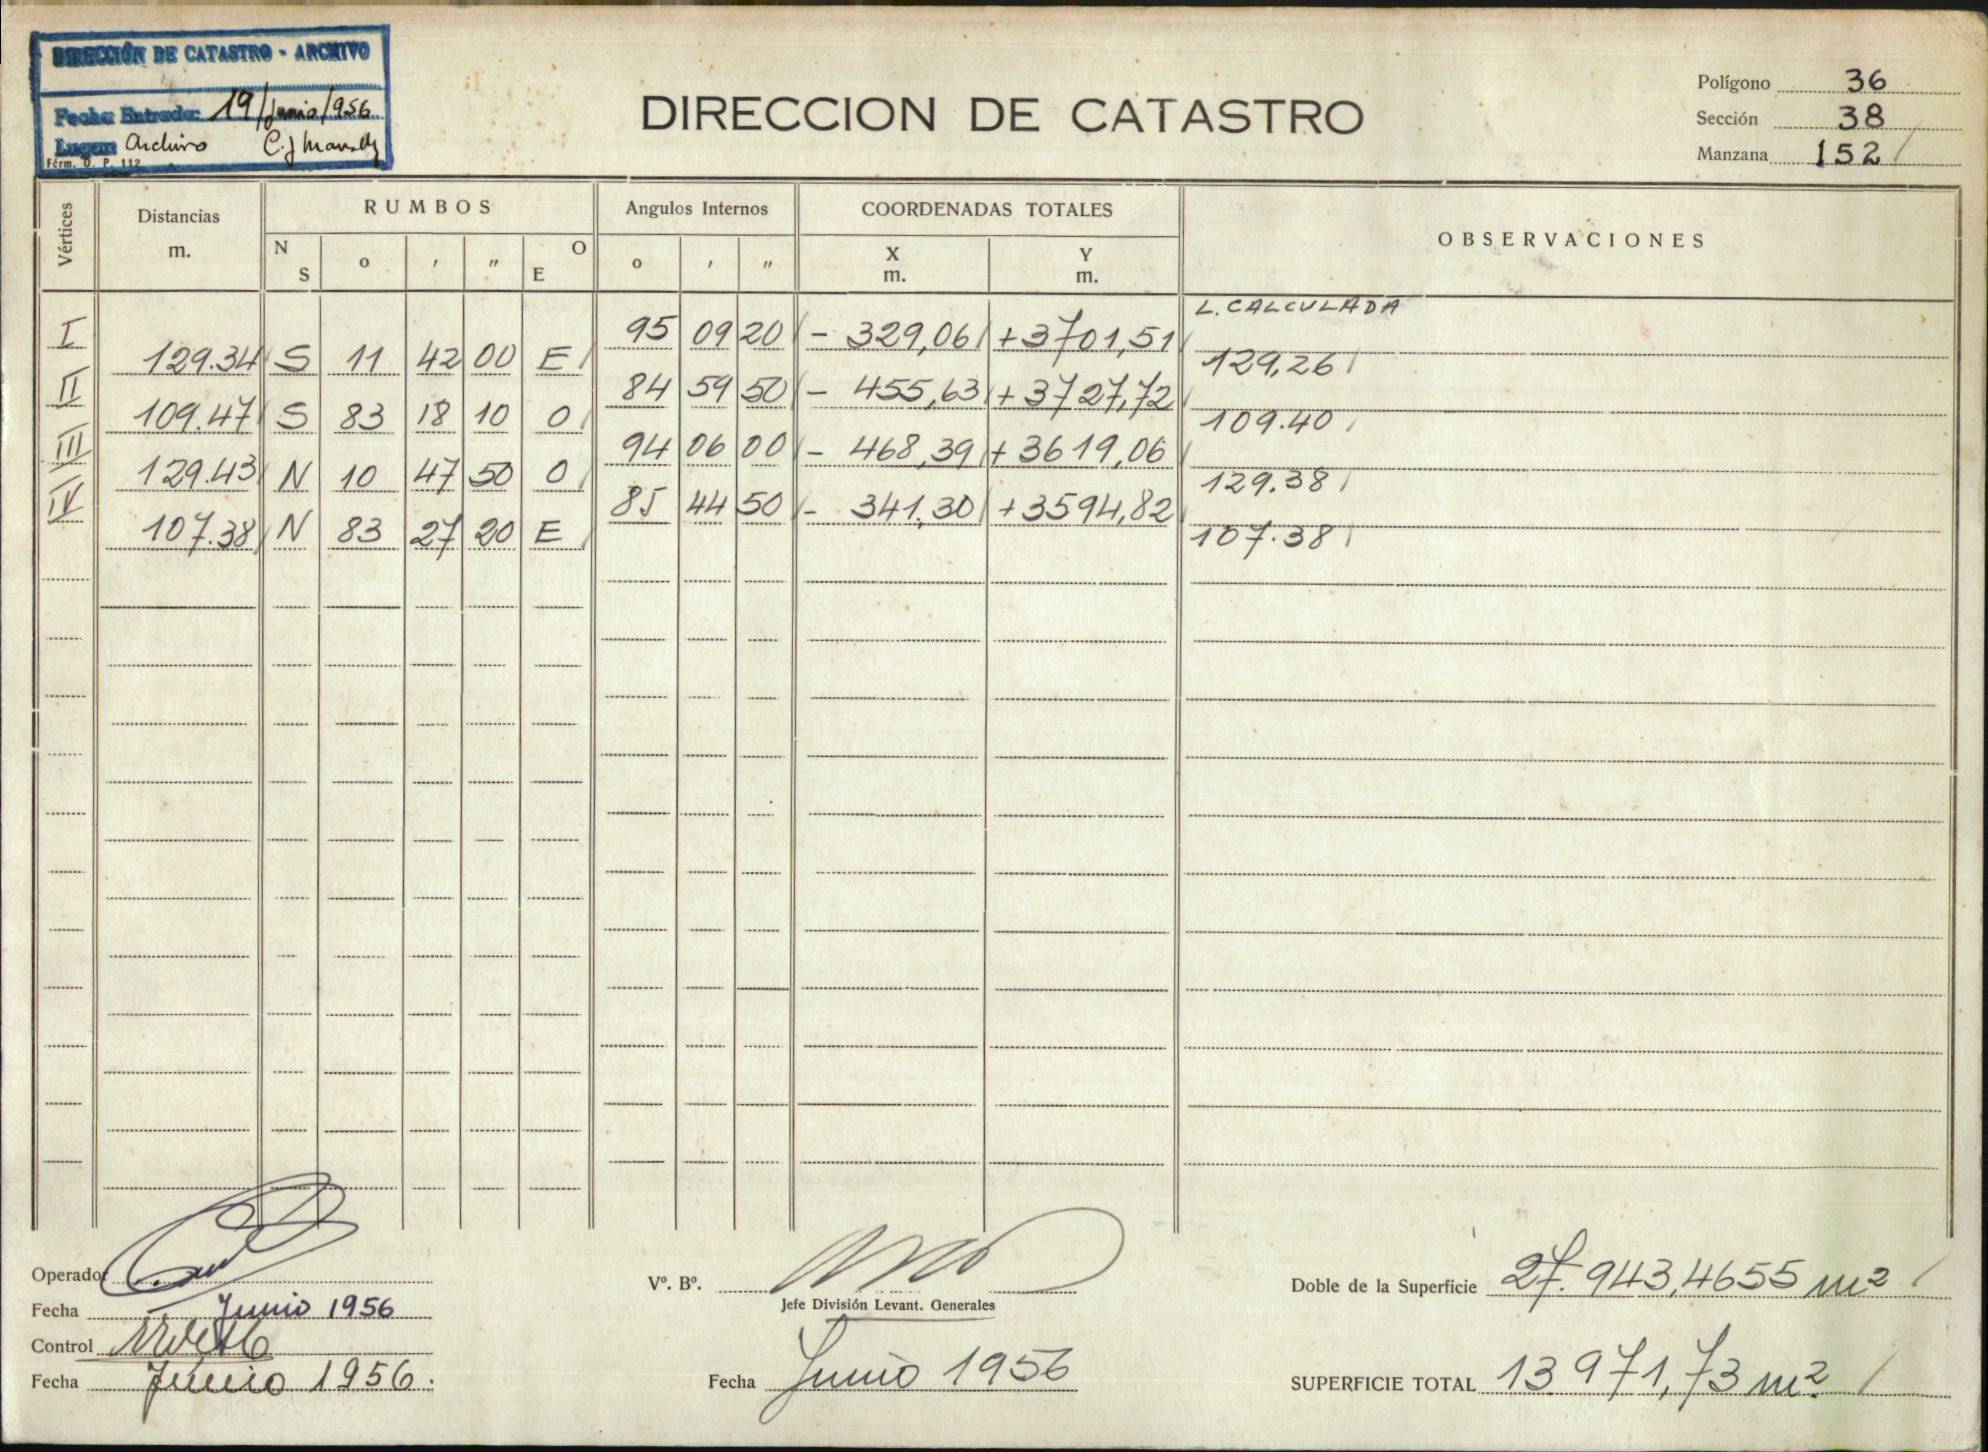 DIRECCIÓN DE CATASTRO - ARCHIVO
Fecha Entrada: 19/Junio/956
Lugar: Archivo
Fórm. D. P. 112
DIRECCION DE CATASTRO
Polígono 36
Sección 38
Manzana 152
Vértices Distancias m. RUMBOS Angulos Internos COORDENADAS TOTALES OBSERVACIONES
N S o ' " O E o ' " X m. Y m.
L. CALCULADA
I 95 09 20 - 329,06 +3701,51
129.34 S 11 42 00 E 129,26
II 84 59 50 - 455,63 +3727,72
109.47 S 83 18 10 O 109.40
III 94 06 00 - 468,39 +3619,06
129.43 N 10 47 50 O 129.38
IV 85 44 50 - 341,30 +3594,82
107.38 N 83 27 20 E 107.38
Operador
Fecha Junio 1956
Control
Fecha Junio 1956.
Vº. Bº.
Jefe División Levant. Generales
Fecha Junio 1956
Doble de la Superficie 27.943,4655 m2
SUPERFICIE TOTAL 13971,73 m2.